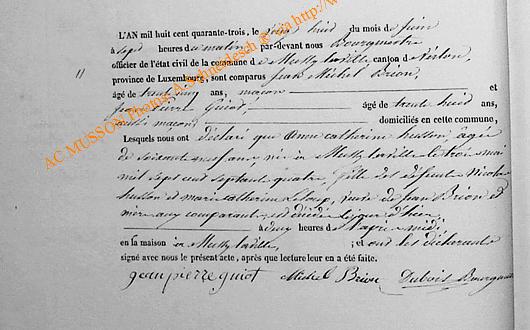 L'AN mil huit cent quarante-trois, le vingt huit du mois de juin
à sept heures du matin par-devant nous Bourgmestre
officier de l'état civil de la commune de Mussy la ville, canton de Virton,
province de Luxembourg, sont comparus Jean Michel Brion,
11
âgé de ans, maçon et
Jean Pierre Guiot, âgé de trente huit ans,
aussi maçon domiciliés en cette commune,
Lesquels nous ont déclaré que Anne Catherine husson, agée
de soixante neuf ans née à Mussy la ville le trois mai
mil sept cent septante quatre, fille des défunts Nicolas
husson et marie Catherine Leloup, veuve de Jean Brion et
mère au comparant est décédée le jour d'hier
à cinq heures d l'après midi,
en sa maison à Mussy la ville, ; et ont les déclarants
signé avec nous le présent acte, après que lecture leur en a été faite.
jean pierre guiot Michel Brion Dubois Bourgmestre
AC MUSSON Photos A Schneidesch ® via http://w